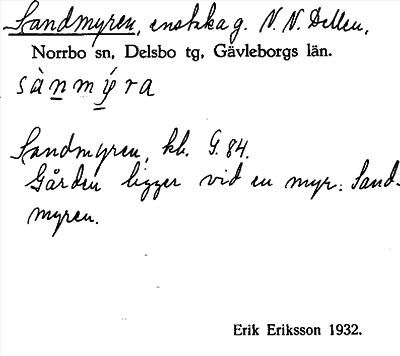 Sandmyren, enstaka g. N. N. Dellen,
Norrbo sn, Delsbo tg, Gävleborgs län.
sànmýra
Sandmyren, kb. G. 84.
Gården ligger vid en myr: Sand-
myren.
Erik Eriksson 1932.